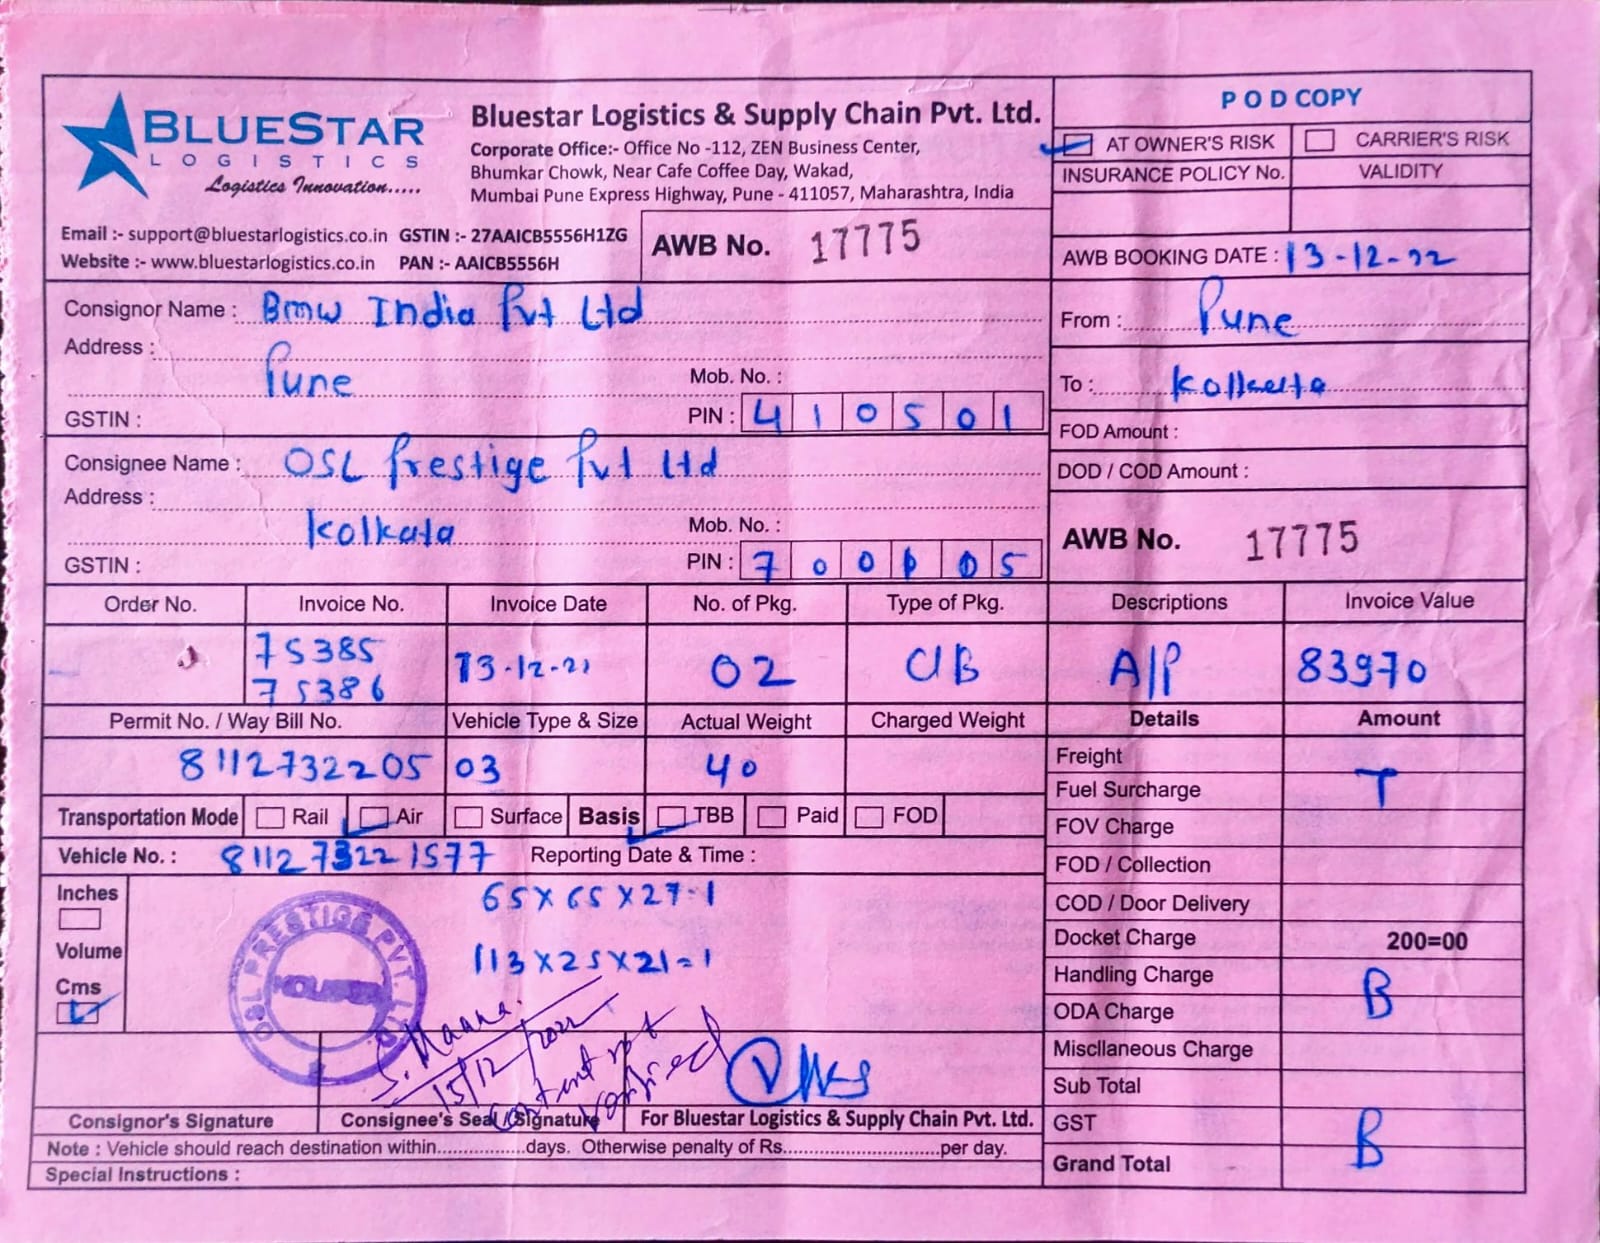 BLUESTAR
LOGISTICS
Logistics Innovation.....
Bluestar Logistics & Supply Chain Pvt. Ltd.
Corporate Office:- Office No -112, ZEN Business Center,
Bhumkar Chowk, Near Cafe Coffee Day, Wakad,
Mumbai Pune Express Highway, Pune - 411057, Maharashtra, India
Email :- support@bluestarlogistics.co.in GSTIN :- 27AAICB5556H1ZG
Website :- www.bluestarlogistics.co.in PAN :- AAICB5556H
AWB No. 17775
POD COPY
AT OWNER'S RISK CARRIER'S RISK
INSURANCE POLICY No. VALIDITY
AWB BOOKING DATE : 13-12-22
Consignor Name : Bmw India Pvt Ltd
Address :
Pune
Mob. No. :
GSTIN :
PIN : 410501
From : Pune
To :
FOD Amount :
DOD / COD Amount :
Consignee Name : OSL Prestige Pvt Ltd
Address :
Kolkata
Mob. No. :
GSTIN :
PIN : 7 0 0 0 5
AWB No. 17775
Order No. Invoice No. Invoice Date No. of Pkg. Type of Pkg. Descriptions Invoice Value
75385 13-12-2 02 CB A/P 83970
75386
Permit No. / Way Bill No. Vehicle Type & Size Actual Weight Charged Weight Details Amount
8112732205 03 40
Freight
Fuel Surcharge T
FOV Charge
FOD / Collection
COD / Door Delivery
Docket Charge 200=00
Handling Charge
ODA Charge B
Miscllaneous Charge
Sub Total
GST B
Grand Total
Transportation Mode Rail Air Surface Basis TBB Paid FOD
Vehicle No. : 811273221577 Reporting Date & Time :
Inches
Volume
Cms
65x65x27-1
113x25x21=1
OSL PRESTIGE PVT. LTD.
KOLKATA
S. Manna.
15/12/2022
Content not
Verified
Consignor's Signature Consignee's Seal / Signature For Bluestar Logistics & Supply Chain Pvt. Ltd.
Note : Vehicle should reach destination within.................days. Otherwise penalty of Rs.............................per day.
Special Instructions :